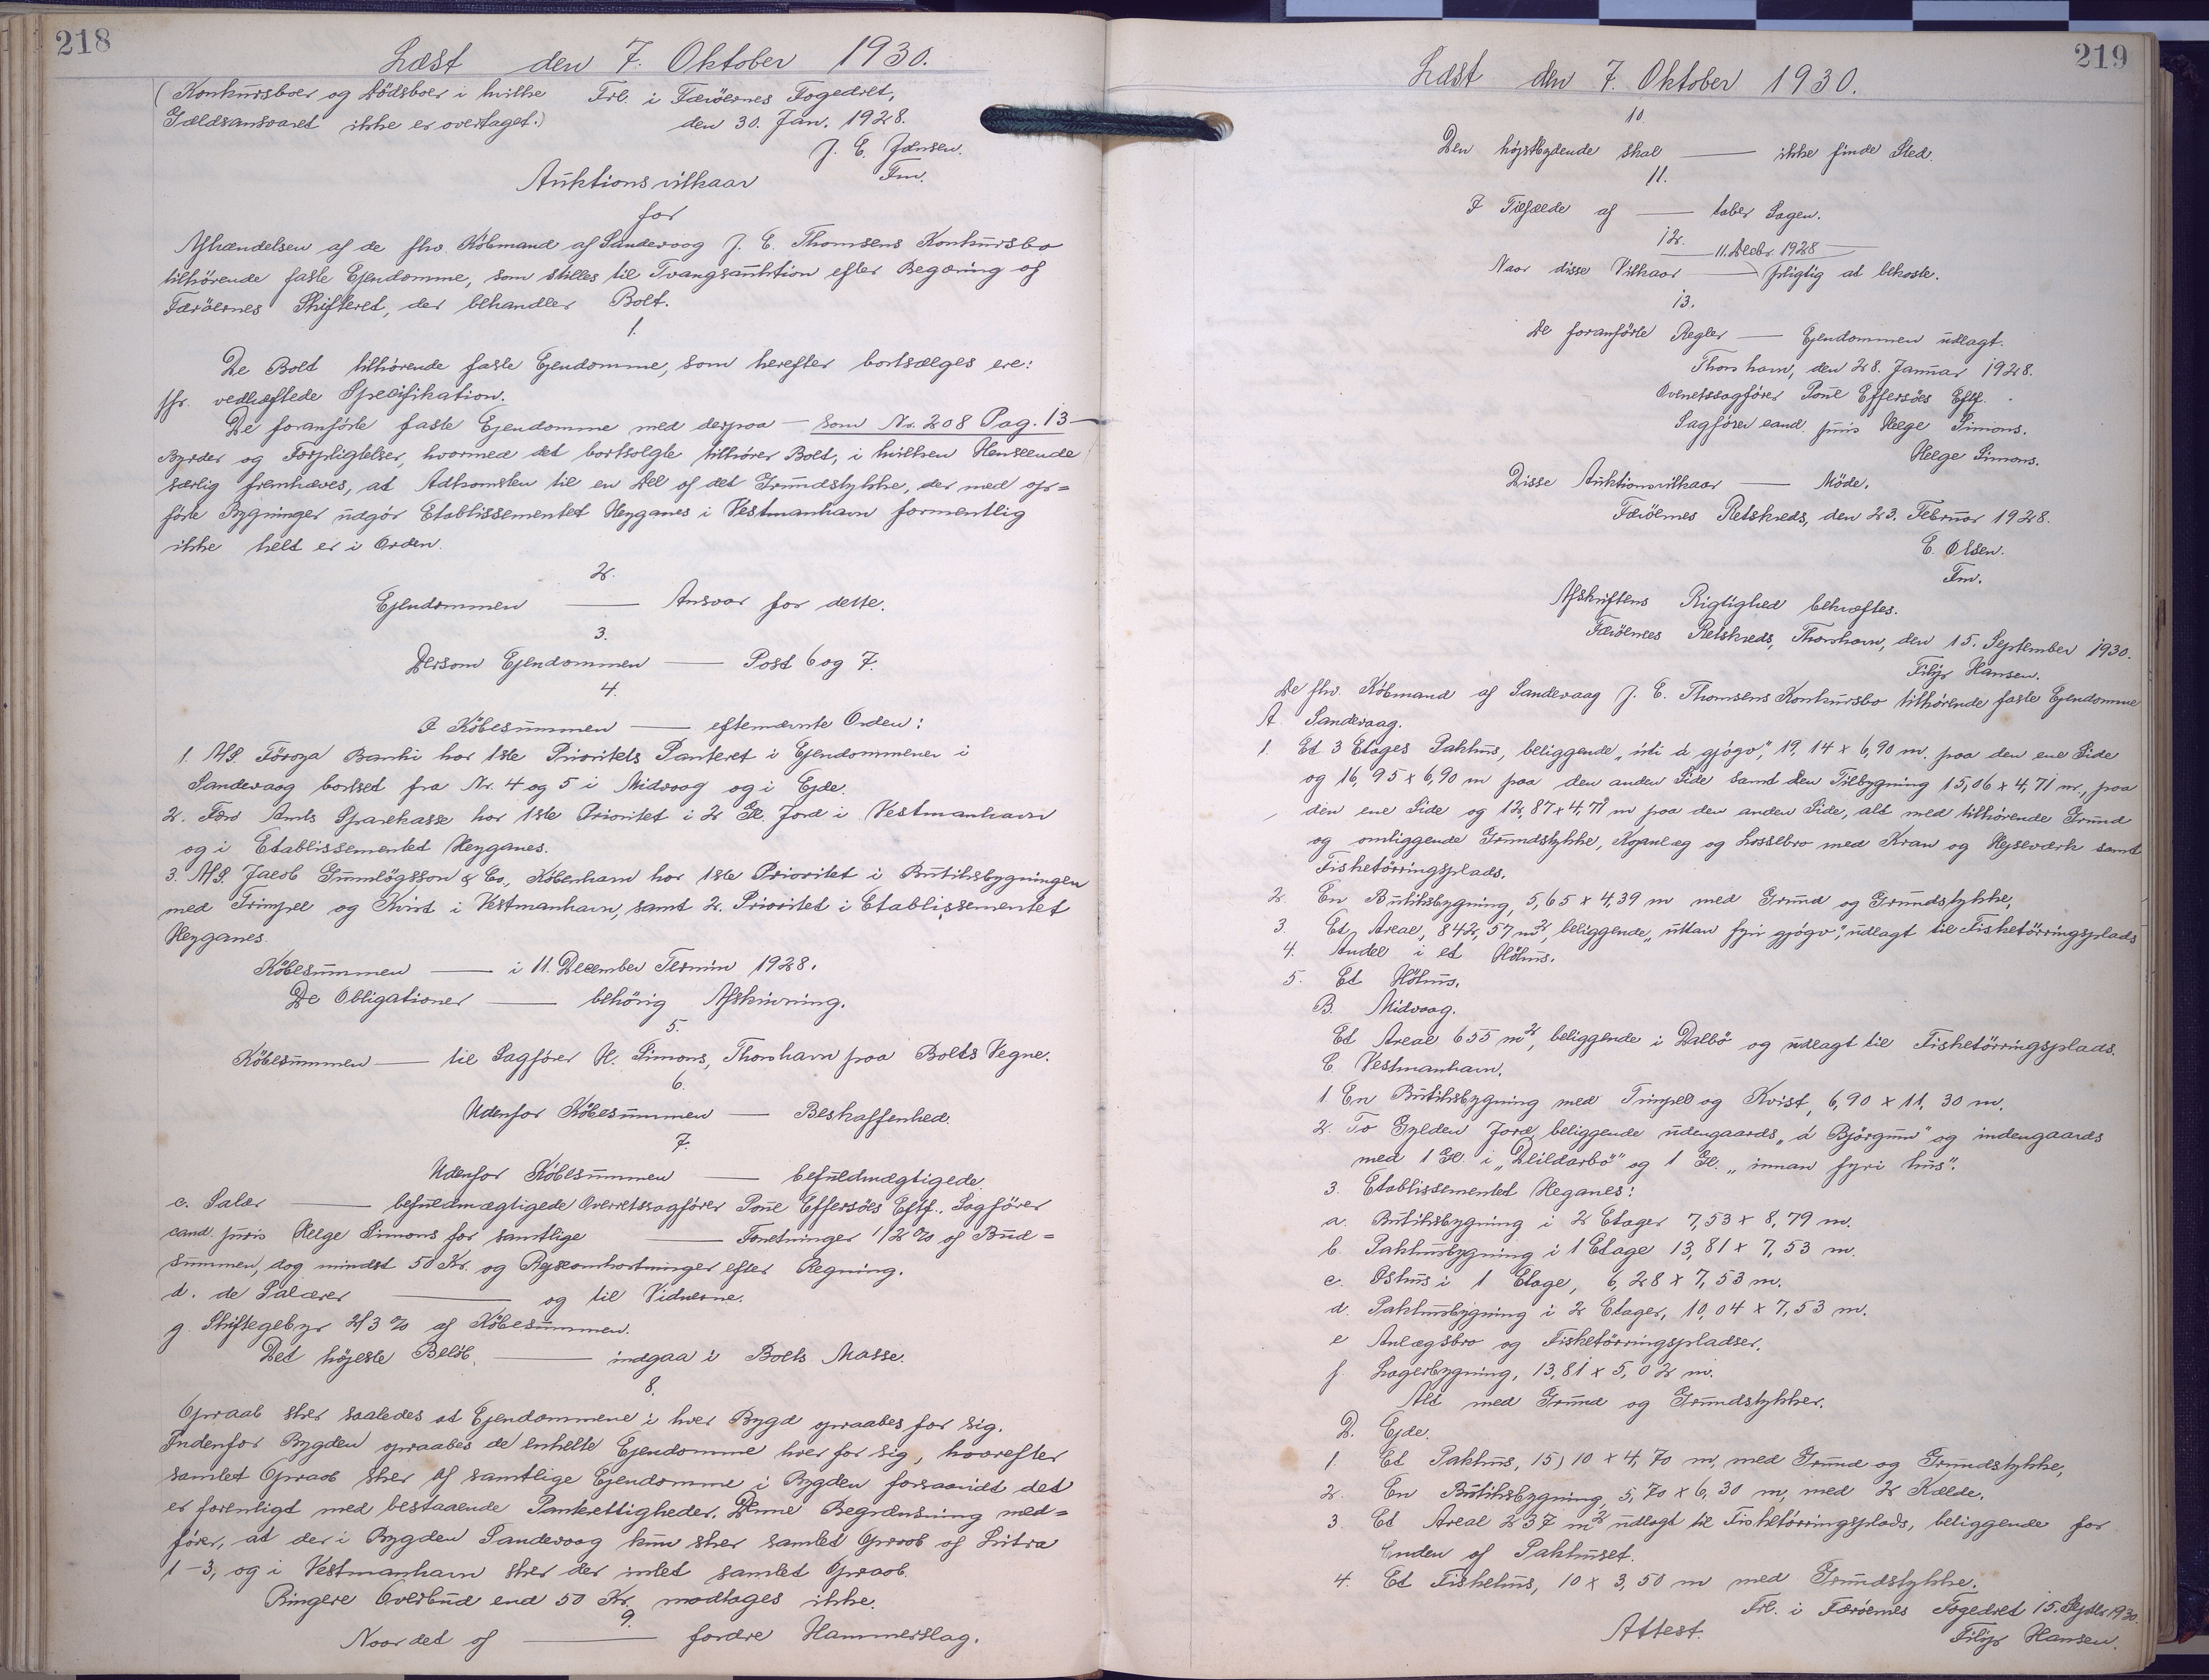 218
Læst den 7. Oktober 1930.
(Konkursboer og Dødsboer i hvilke
Gældsansvaret ikke er overtaget.)
Frl. i Færöernes Fogedret,
den 30. Jan. 1928.
J. E. Jensen.
Fm.
Auktionsvilkaar
for
Afhændelsen af de fhv. Købmand af Sandevaag J. E. Thomsens Konkursbo
tilhørende faste Ejendomme, som stilles til Tvangsauktion efter Begæring af
Færöernes Skifteret, der behandler Boet.
1.
De Boet tilhørende faste Ejendomme, som herefter bortsælges ere:
jfr. vedhæftede Specifikation.
De foranførte faste Ejendomme med derpaa — som Nr. 208 Pag. 13 —
Byrder og Forpligtelser, hvormed det bortsolgte tilhører Boet, i hvilken Henseende
særlig fremhæves, at Adkomsten til en Del af det Grundstykke, der med op=
førte Bygninger udgör Etablissementet Heyganes i Vestmanhavn formentlig
ikke helt er i Orden.
2.
Ejendommen —— Ansvar for dette.
3.
Dersom Ejendommen —— Post 6 og 7.
4.
I Købesummen —— efternævnte Orden:
1. A/S. Föroya Banki har 1ste Prioritets Panteret i Ejendommener i
Sandevaag bortset fra Nr. 4 og 5 i Midvaag og i Ejde.
2. Færö Amts Sparekasse har 1ste Prioritet i 2 Gl. Jord i Vestmanhavn
og i Etablissementet Heyganes.
3. A/S. Jacob Gunnlögsson & Co., København har 1ste Prioritet i Butiksbygningen
med Trimpel og Kvist i Vestmanhavn, samt 2. Prioritet i Etablissementet
Heyganes.
Købesummen —— i 11. December Termin 1928.
De Obligationer —— behörig Afskrivning.
5.
Købesummen —— til Sagfører H. Simons, Thorshavn paa Boets Vegne.
6.
Udenfor Købesummen —— Beskaffenhed.
7.
Udenfor Købesummen —— befuldmægtigede.
c. Salær —— befuldmægtigede Overretssagfører Poul Effersöes Eftf., Sagfører
cand. juris Helge Simons for samtlige —— Forretninger 1/2 % af Bud=
summen, dog mindst 50 Kr. og Rejseomkostninger efter Regning.
d. de Salærer —— og til Vidnerne.
g. Skiftegebyr 2/3 % af Købesummen.
Det højeste Beløb, —— indgaa i Boets Masse.
8.
Opraab sker saaledes at Ejendommene i hver Bygd opraabes for sig.
Indenfor Bygden opraabes de enkelte Ejendomme hver for sig, hvorefter
samlet Opraab sker af samtlige Ejendomme i Bygden forsaavidt det
er foreneligt med bestaaende Panterettigheder. Denne Begrænsning med=
fører, at der i Bygden Sandevaag kun sker samlet Opraab af Litra
1-3, og i Vestmanhavn sker der intet samlet Opraab.
Ringere Overbud end 50 Kr. modtages ikke.
9.
Naar det af —— fordre Hammerslag.
219
Læst den 7. Oktober 1930.
10.
Den højstbydende skal —— ikke finde Sted.
11.
I Tilfælde af —— taber Sagen.
12.
—— 11. Decbr. 1928 ——
Naar disse Vilkaar —— pligtig at bekoste.
13.
De foranførte Regler —— Ejendommen udlagt.
Thorshavn, den 28. Januar 1928.
Overretssagfører Poul Effersöes Eftf.
Sagfører cand. juris Helge Simons.
Helge Simons.
Disse Auktionsvilkaar —— Möde.
Færöernes Retskreds, den 23. Februar 1928.
E. Olsen.
Fm.
Afskriftens Rigtighed bekræftes.
Færöernes Retskreds, Thorshavn, den 15. September 1930.
Filip Hansen.
De fhv. Købmand af Sandevaag J. E. Thomsens Konkursbo tilhørende faste Ejendomme
A. Sandevaag.
1. Et 3 Etages Pakhus, beliggende „úti á gjógv", 19,14 x 6,90 m. paa den ene Side
og 16,95 x 6,90 m paa den anden Side samt den Tilbygning 15,06 x 4,71 m., paa
den ene Side og 12,87 x 4,71 m paa den anden Side, alt med tilhörende Grund
og omliggende Grundstykke, Kajanlæg og Lossebro med Kran og Hejseværk samt
Fisketörringsplads.
2. En Butiksbygning, 5,65 x 4,39 m med Grund og Grundstykke.
3. Et Areal, 842,57 m2, beliggende „uttan fyri gjógv", udlagt til Fisketörringsplads
4. Andel i et Höhus.
5. Et Höhus.
B. Midvaag.
Et Areal 655 m2, beliggende i Dalbö og udlagt til Fisketörringsplads.
C. Vestmanhavn.
1. En Butiksbygning med Trimpel og Kvist, 6,90 x 11,30 m.
2. To Gylden Jord, beliggende udengaards „á Björgum" og indengaards
med 1 Gl. i „Deildarbö" og 1 Gl. „innan fyri hús".
3. Etablissementet Heganes:
a. Butiksbygning i 2 Etager 7,53 x 8,79 m.
b. Pakhusbygning i 1 Etage 13,81 x 7,53 m.
c. Ishus i 1 Etage, 6,28 x 7,53 m.
d. Pakhusbygning i 2 Etager, 10,04 x 7,53 m.
e Anlægsbro og Fisketörringspladser.
f. Lagerbygning, 13,81 x 5,02 m.
Alt med Grund og Grundstykker.
D. Ejde.
1. Et Pakhus, 15,10 x 4,70 m, med Grund og Grundstykke,
2. En Butiksbygning, 5,70 x 6,30 m, med 2 Kælde.
3 Et Areal 237 m2 udlagt til Fisketörringsplads, beliggende for
Enden af Pakhuset.
4. Et Fiskehus, 10 x 3,50 m med Grundstykke.
Frl. i Færöernes Fogedret 15. Septbr 1930.
Attest.
Filip Hansen.